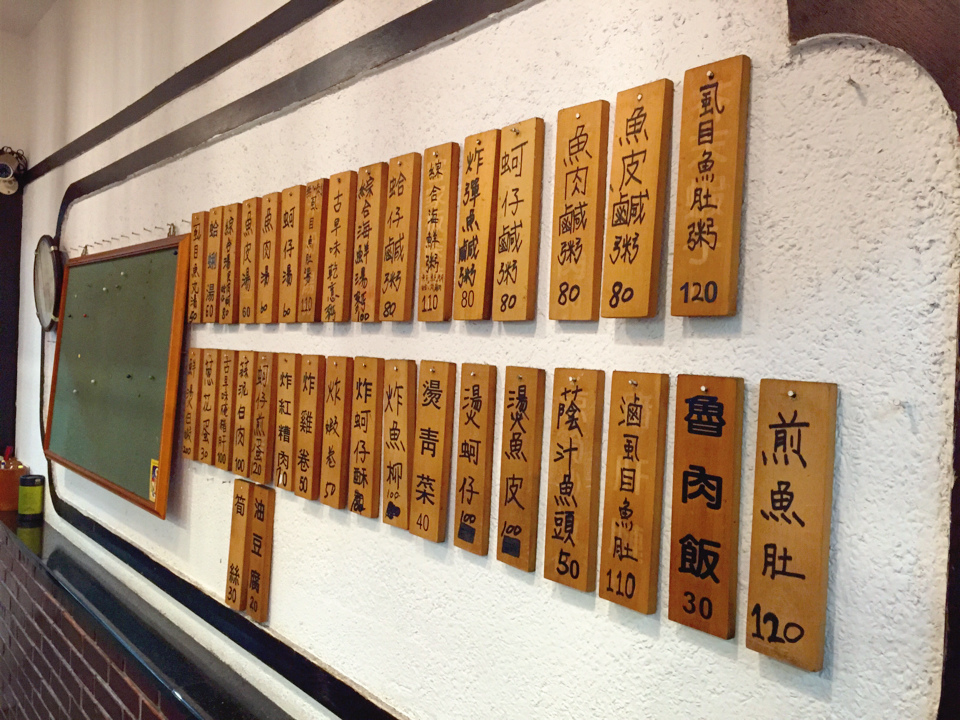 虱目魚肚粥 120
魚皮鹹粥 80
魚肉鹹粥 80
蚵仔鹹粥 80
炸彈魚鹹粥 80
綜合海鮮粥 110
蛤仔鹹粥 80
綜合海鮮湯
古早味
蚵仔湯 60
魚肉湯 60
魚皮湯 60
蛤蜊湯 60
煎魚肚 120
魯肉飯 30
滷虱目魚肚 110
蔭汁魚頭 50
燙魚皮 100
燙蚵仔 100
燙青菜 40
炸魚柳 100
炸蚵仔酥
炸蝦卷 50
炸雞卷 50
炸紅糟肉
蚵仔煎蛋 120
蒜泥白肉 100
蔥花蛋 30
油豆腐 20
筍絲 30